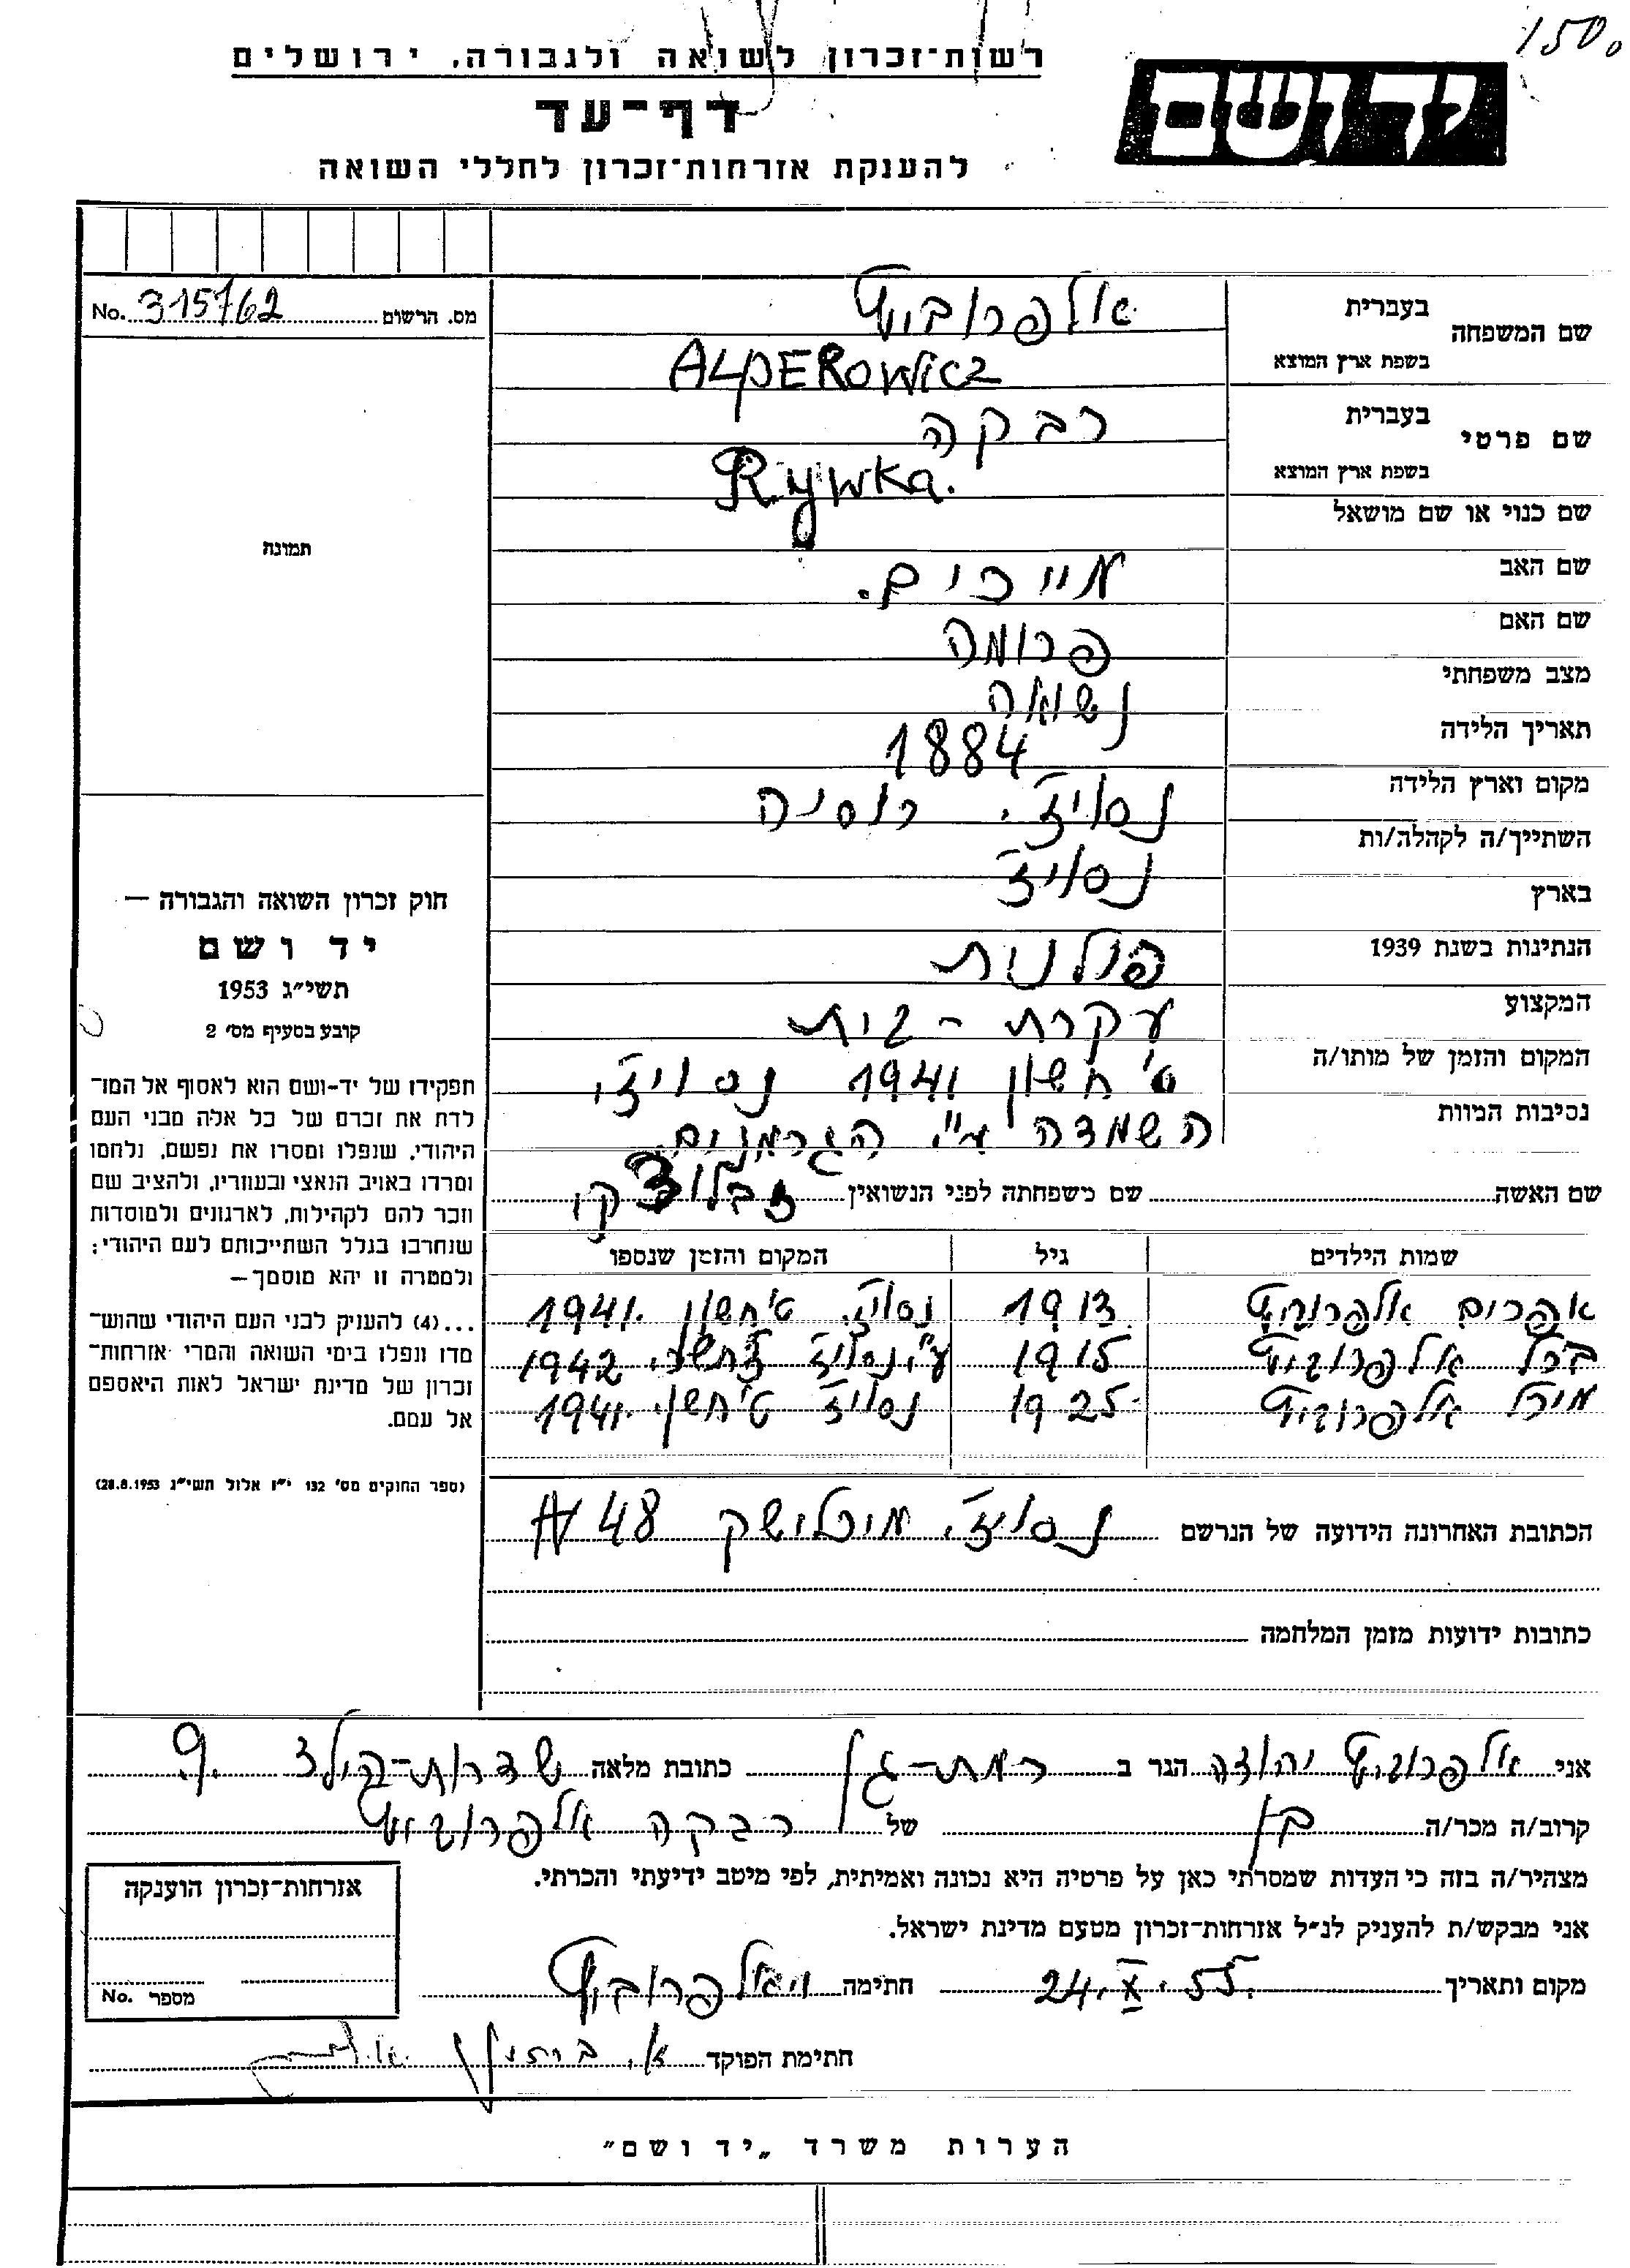 1500
רשות־זכרון לשואה ולגבורה, ירושלים
יד ושם
דף־עד
להענקת אזרחות־זכרון לחללי השואה
מס. הרשום 315762 No.
שם המשפחה בעברית אלפרוביץ
בשפת ארץ המוצא ALPEROWICZ
שם פרטי בעברית רבקה
בשפת ארץ המוצא Rywka.
שם כנוי או שם מושאל
תמונה
שם האב
שם האם פרומה
מצב משפחתי נשואה
תאריך הלידה 1884
מקום וארץ הלידה נסויז', רוסיה
השתייך/ה לקהלה/ות נסויז'
בארץ
הנתינות בשנת 1939 פולנית
המקצוע עקרת - בית
המקום והזמן של מותו/ה ט' חשון 1941 נסויז',
נסיבות המוות השמדה ע"י הגרמנים.
שם האשה שם משפחתה לפני הנשואין
שמות הילדים גיל המקום והזמן שנספו
אפרים אלפרוביץ 1913 נסויז', ט' חשון 1941.
אלפרוביץ 1915 נסויז' 1942
מיכל אלפרוביץ 1925 נסויז' ט' חשון 1941.
הכתובת האחרונה הידועה של הנרשם נסויז', 48 #
כתובות ידועות מזמן המלחמה
חוק זכרון השואה והגבורה —
יד ושם
תשי״ג 1953
קובע בסעיף מס׳ 2
תפקידו של יד-ושם הוא לאסוף אל המו־
לדת את זכרם של כל אלה מבני העם
היהודי, שנפלו ומסרו את נפשם, נלחמו
ומרדו באויב הנאצי ובעוזריו, ולהציב שם
וזכר להם לקהילות, לארגונים ולמוסדות
שנחרבו בגלל השתייכותם לעם היהודי;
ולמטרה זו יהא מוסמך —
...(4) להעניק לבני העם היהודי שהוש־
מדו ונפלו בימי השואה והמרי אזרחות־
זכרון של מדינת ישראל לאות היאספם
אל עמם.
(ספר החוקים מס׳ 132 י״ז אלול תשי״ג 28.8.1953)
אני אלפרוביץ יהודה הגר ב רמת-גן כתובת מלאה שדרות- 9.
קרוב/ה מכר/ה בן של רבקה אלפרוביץ
מצהיר/ה בזה כי העדות שמסרתי כאן על פרטיה היא נכונה ואמיתית, לפי מיטב ידיעתי והכרתי.
אני מבקש/ת להעניק לנ״ל אזרחות־זכרון מטעם מדינת ישראל.
מקום ותאריך 24.X.55. חתימה י אלפרוביץ
חתימת הפוקד
אזרחות־זכרון הוענקה
מספר No.
הערות משרד „יד ושם״